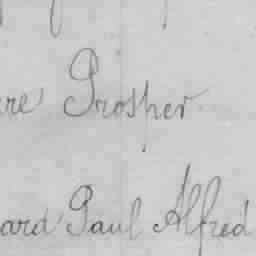 re Prosper
ard Paul Alfred